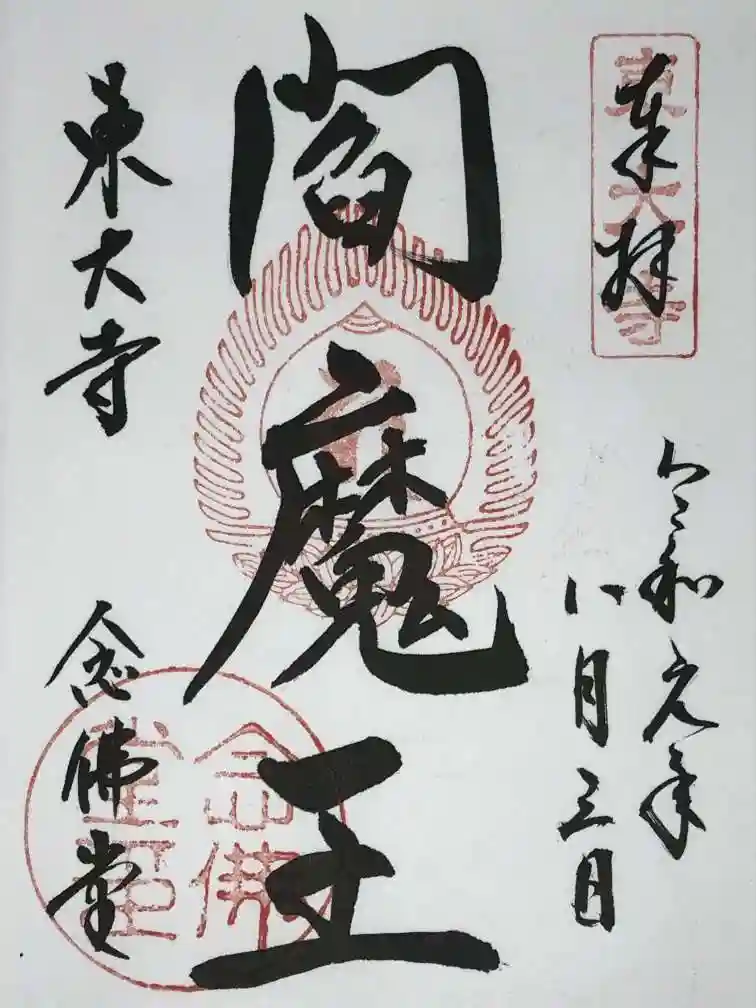 奉拝
東大寺
令和元年
八月三日
閻魔王
東大寺
念佛堂
念佛
堂印